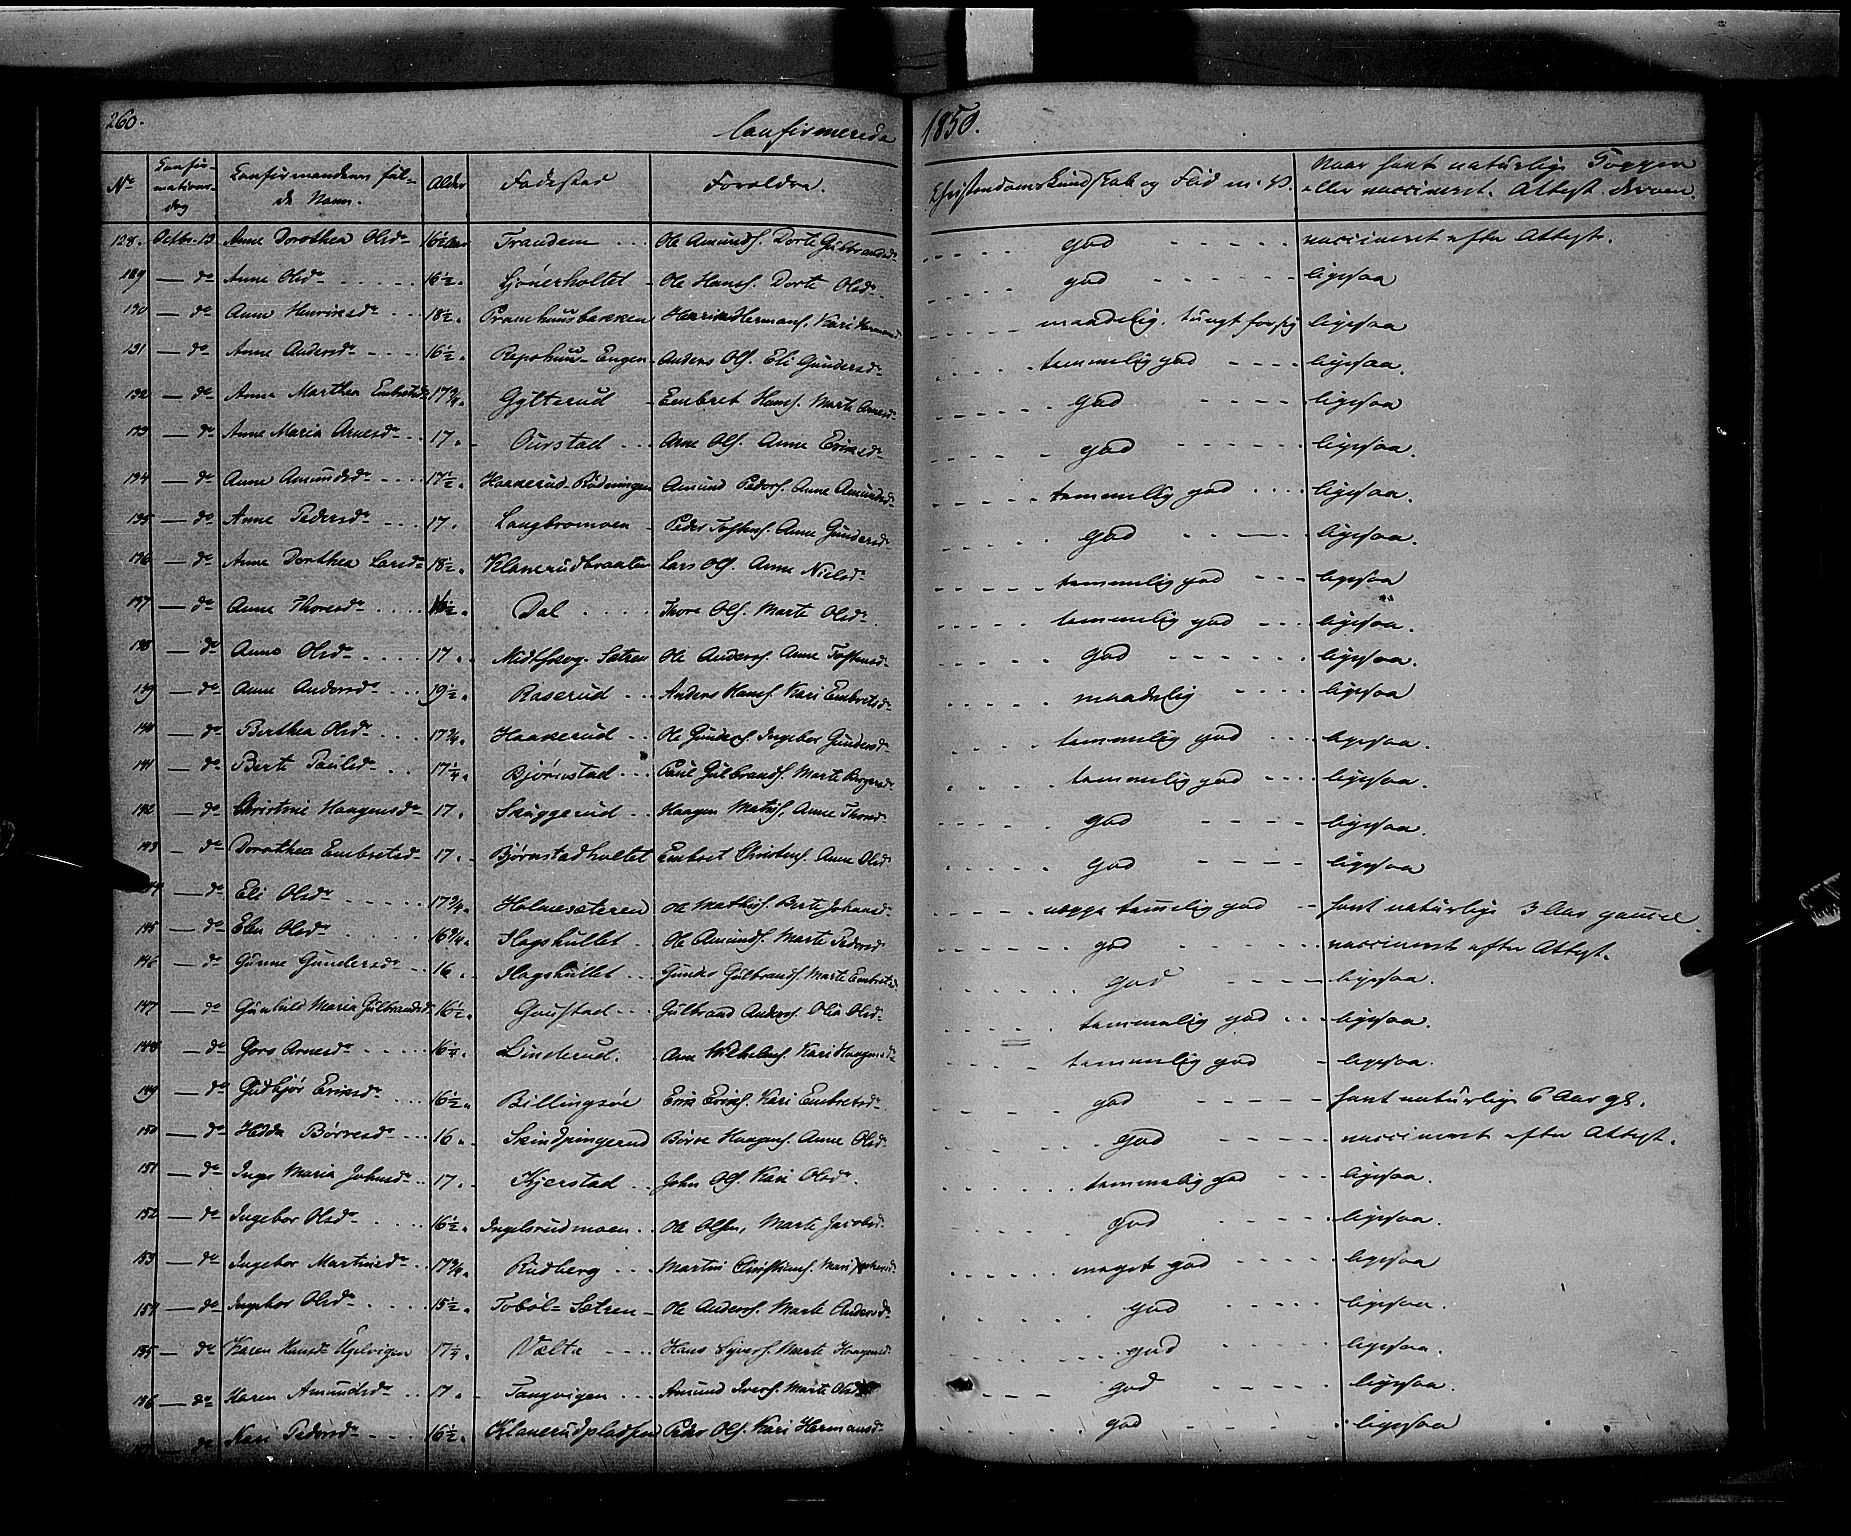 260. Confirmerede 1850.
No Confirmations-dag Confirmandens fulde Navn. Alder Fødested Forældre. Christendoms Kundskab og Flid m. v. Naar havt naturlige Kopper eller vaccineret. Attest derom.
128. Octbr. 13 Anne Dorothea Olsdr 16½ Aar Trandem Ole Amunds. Dorte Gulbrandsdr god vaccineret efter Attest.
129 — do Anne Olsdr 16½. Ole Hans. Dorte Olsdr god ligesaa
130 — do Anne Henriksdr 18½. Pramhuusbakken Henrik Hermans. Kari maadelig. tungt ligesaa
131 — do Anne Andersdr 16½. Repshuus-Engen Anders Ols. Eli Gundersdr temmelig god ligesaa.
132 — do Anne Marthea Embretsdr 17¾. Gytterud Embret Hans. Marte Arnesdr god ligesaa
133 — do Anne Maria Arnesdr 17. Ourstad Arne Ols. Anne Eriksdr god ligesaa.
134 — do Anne Amundsdr 17½. Haakerud-Rødningen Amund Peders. Anne Amundsdr temmelig god ligesaa.
135 — do Anne Pedersdr 17. Langbromoen Peder Tostens. Anne Gundersdr god ligesaa.
136 — do Anne Dorthea Larsdr 18½. Klanerudbraaten Lars Ols. Anne Nielsdr temmelig god ligesaa
137 — do Anne Thoresdr Dal Thore Ols. Marte Olsdr temmelig god ligesaa.
138 — do Anne Olsdr 17. Midtskog-Sætren Ole Anders. Anne Tostensdr god ligesaa.
139 — do Anne Andersdr 19½. Raserud Anders Hans. Kari Embretsdr maadelig ligesaa
140 — do Berthea Olsdr 17¾. Haakerud Ole Gunders. Ingebor Gundersdr temmelig god ligesaa.
141 — do Berte Paulsdr 17¼. Bjørnstad Paul Gulbrands. Marte temmelig god ligesaa.
142 — do Christine Haagensdr 17. Skuggerud Haagen Matis. Anne Thorsdr god ligesaa.
143 — do Dorothea Embretsdr 17. Bjørnstadholtet Embret Christens. Anne Olsdr god ligesaa
144 — do Eli Olsdr 17¾. Holmesæteren Ole Mathis. Berte Johansdr neppe temelig god havt naturlige 3 Aar gamel
145 — do Elen Olsdr 16¾. Hagshullet Ole Amunds. Marte Pedersdr god vaccineret efter Attest.
146 — do Gunne Gundersdr 16. Hagshullet Gulbrands. Marte Embretsdr god ligesaa.
147 — do Gunhild Maria Gulbrandsdr 16½. Goustad Gulbrand Anders. Olia Olsdr temmelig god ligesaa.
148 — do Goro Arnesdr 16¼. Linderud. Arne Wilhelms. Kari Haagensdr temmelig god ligesaa.
149 — do Gudbjør Eriksdr 16½. Billingsøe Erik Eriks. Kari Embretsdr god havt naturlige 6 Aar gl.
150 — do Hedda Børresdr 16. Skindpungerud Børre Haagens. Anne Olsdr god vaccineret efter Attest.
151 — do Inge Maria Johnsdr 17. Kjerstad John Ols. Kari Olsdr. temmelig god ligesaa.
152 — do Ingebor Olsdr 16½. Ingelsrudmoen Ole Olsen, Marte Jacobsdr god ligesaa.
153 — do Ingebor Martinsdr 17¾. Rudberg Martin Christians. Mari meget god ligesaa
154 — do Ingebor Olsdr 15½. Tobøl-Sætren Ole Anders. Marte Andersdr god ligesaa.
155 — do Karen Hansdr Ugelvigen 17¼. Vælta Hans Syvers. Marte Haagensdr god ligesaa.
156 — do Karen Amundsdr 17. Tangvigen Amund Ivers. Marte Olsdr god ligesaa.
157 — do Kari Pedersdr 16½. Klanerudpladsen Peder Ols. Kari Hermansdr god ligesaa